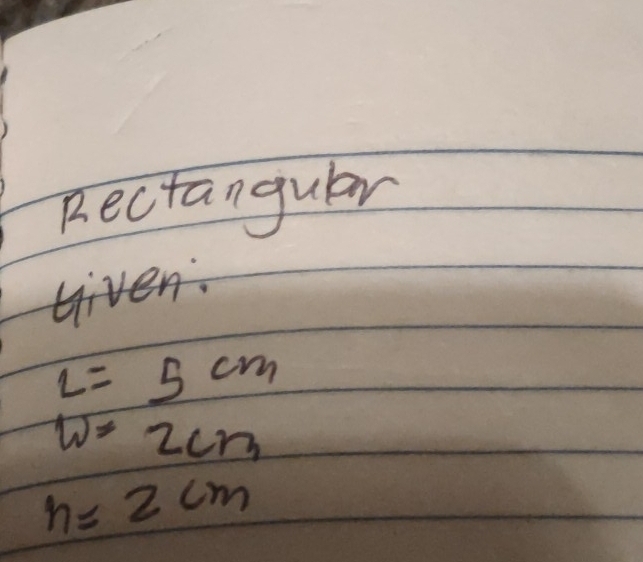 Rectangular
Given:
L= 5 cm
W= 2cm
h= 2 cm